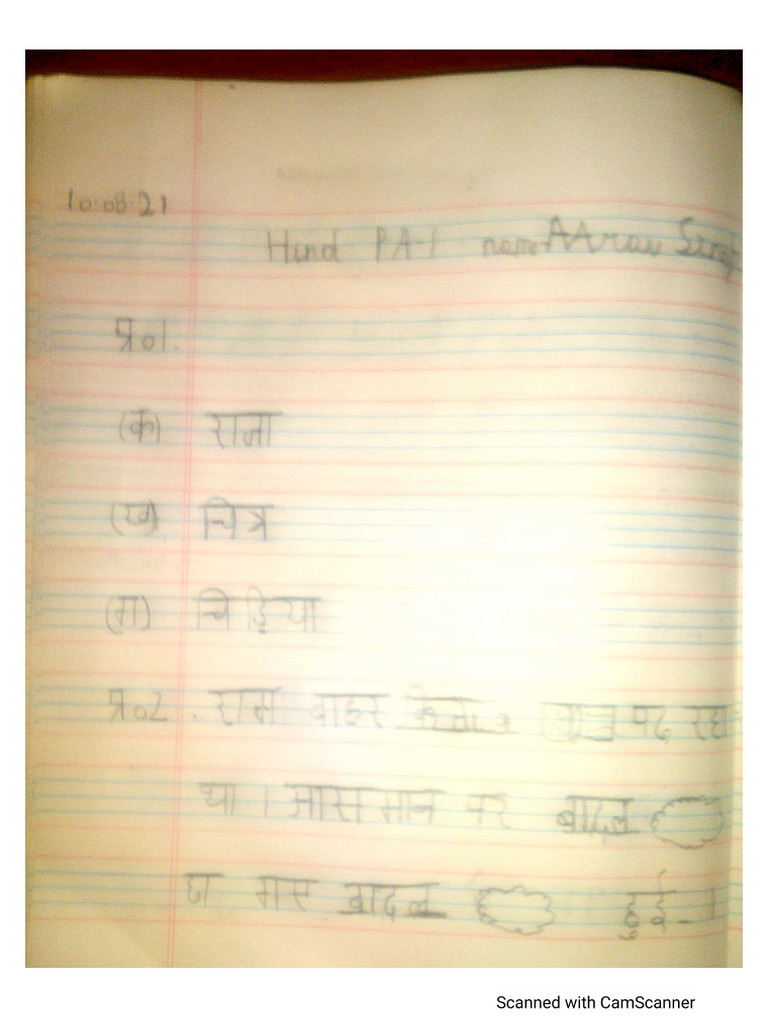 10.08.21
Hind PA-1 name AArav
प्र०1.
(क) राजा
(ख) चित्र
(ग) चिड़िया
प्र०2. राम बाहर पढ रहा
था । आसमान पर बादल
छा गए बादल हुई ।
Scanned with CamScanner